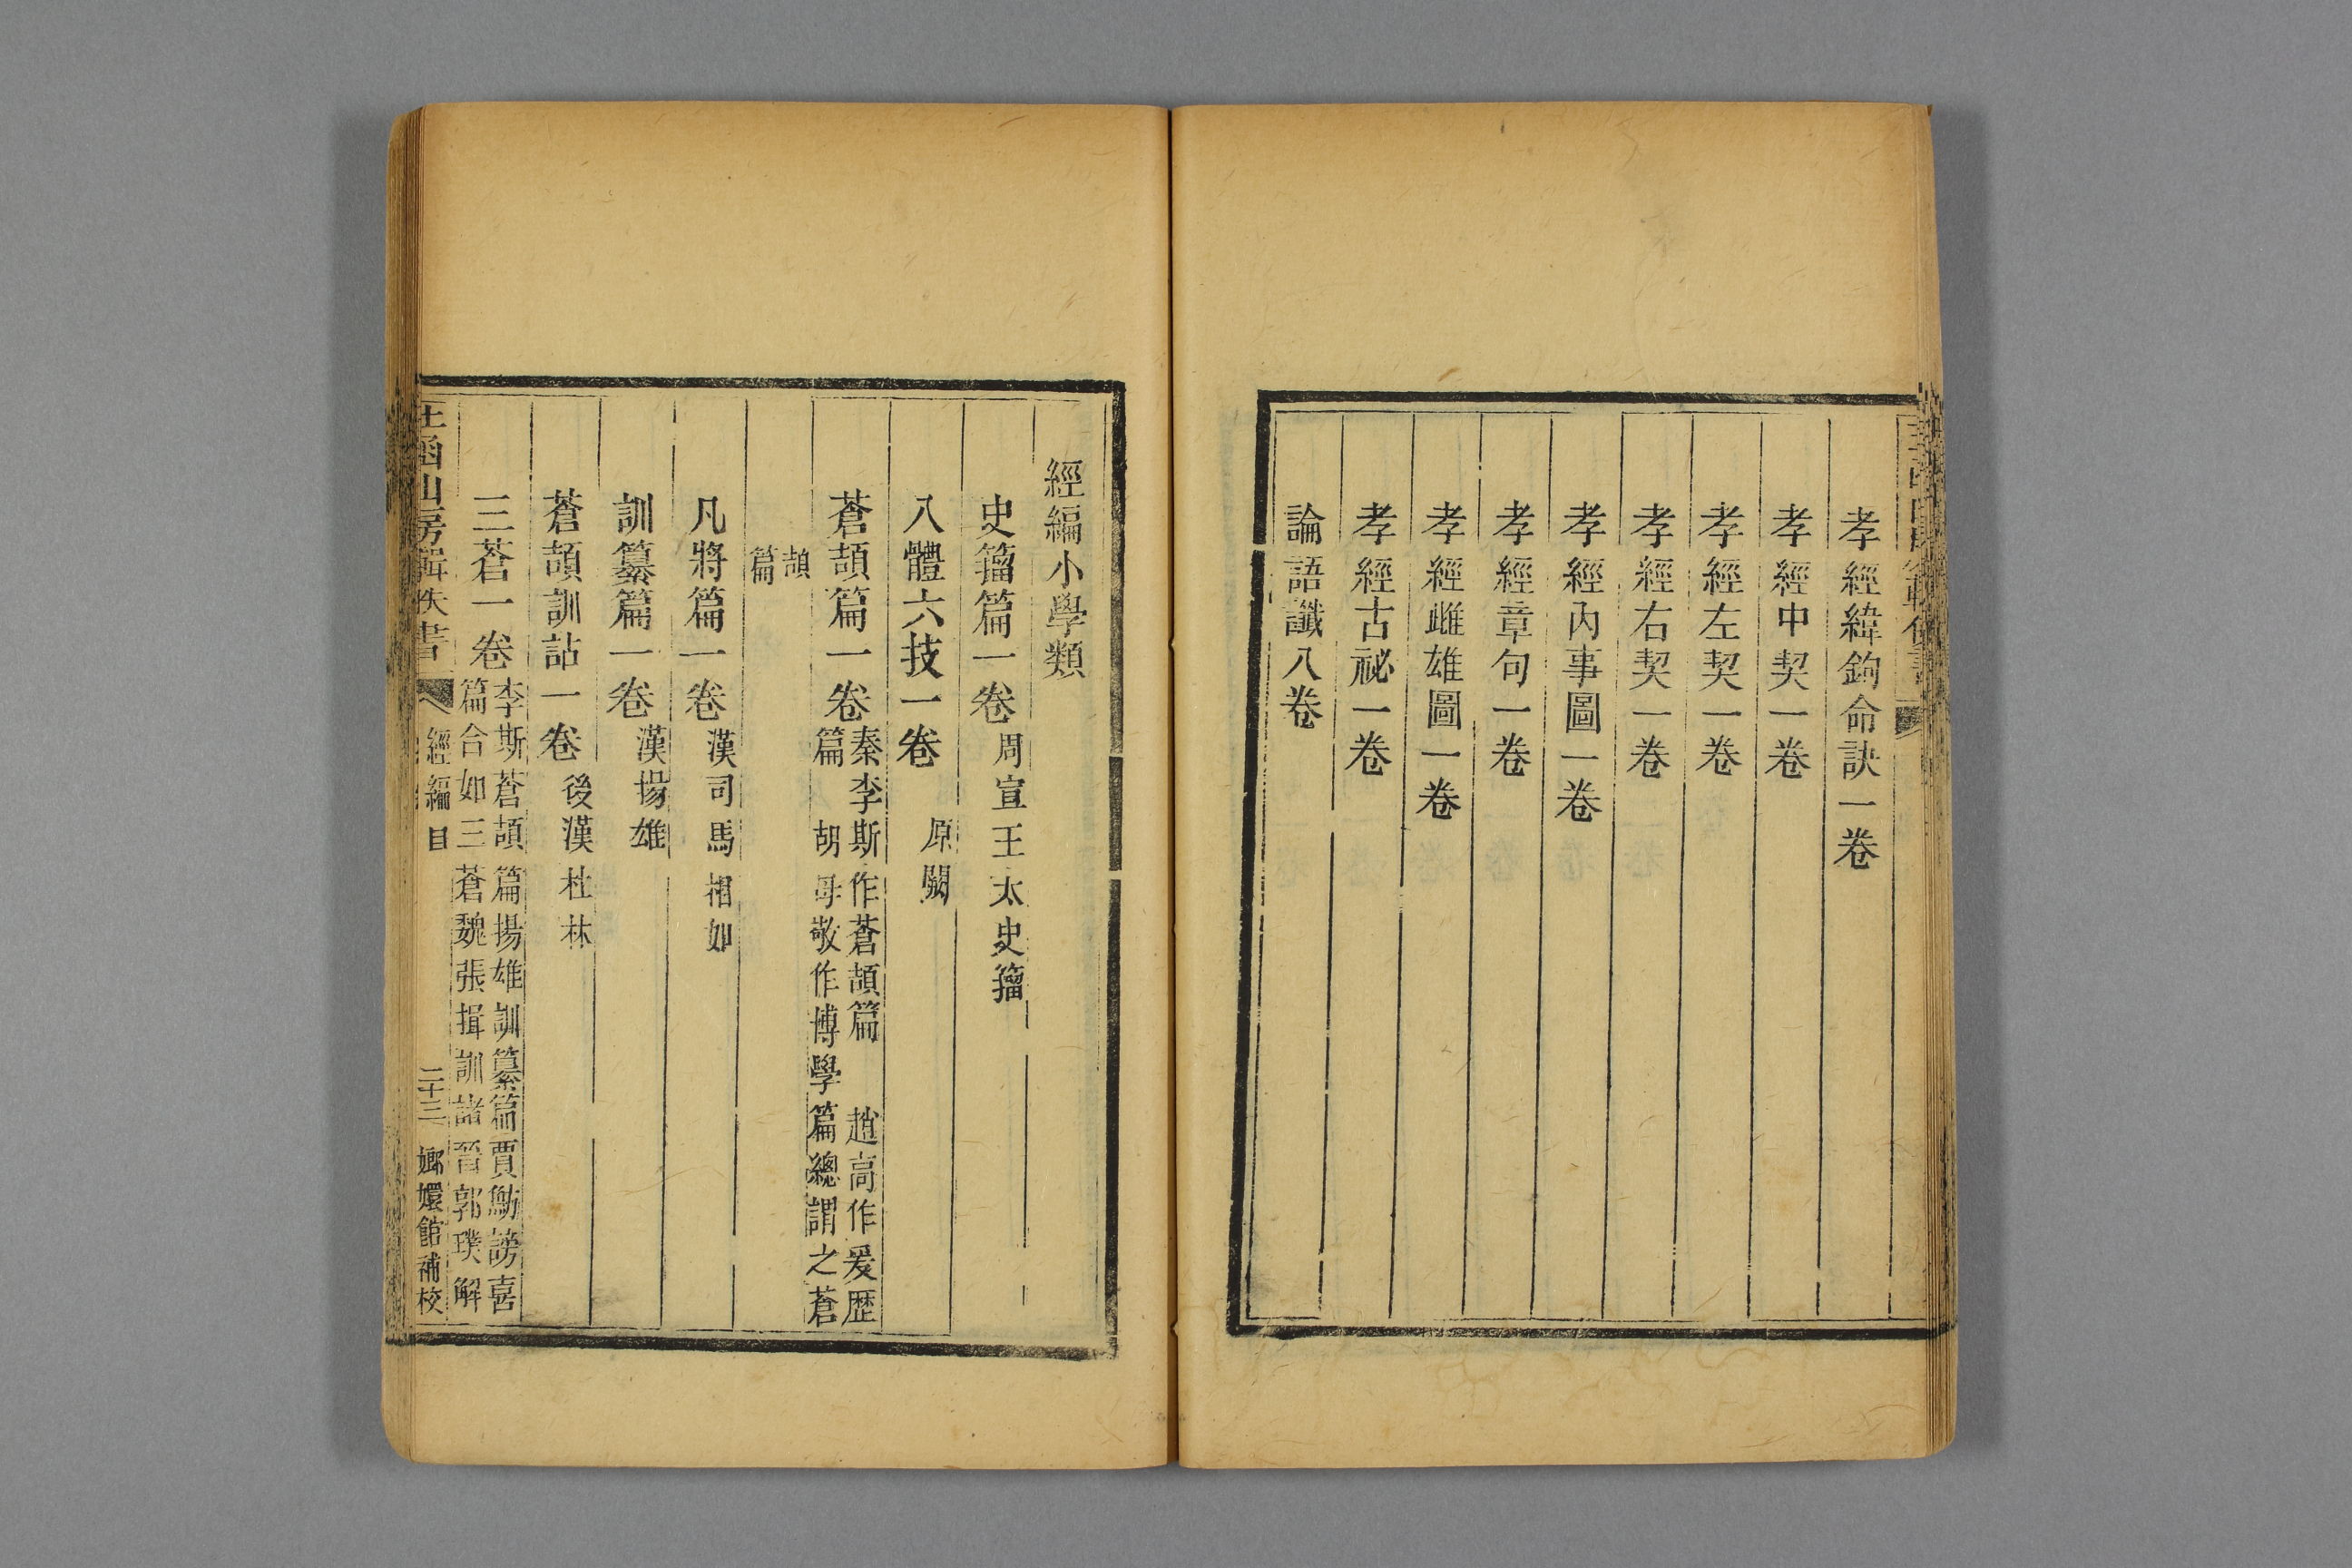 孝經緯鉤命訣一卷
孝經中契一卷
孝經左契一卷
孝經右契一卷
孝經內事圖一卷
孝經章句一卷
孝經雌雄圖一卷
孝經古祕一卷
論語讖八卷
經編小學類
史籀篇一卷 周宣王太史籀
八體六技一卷 原闕
蒼頡篇一卷 秦李斯作蒼頡篇 趙高作爰歷
篇 胡母敬作博學篇總謂之蒼
頡
篇
凡將篇一卷 漢司馬相如
訓纂篇一卷 漢揚雄
蒼頡訓詁一卷 後漢杜林
三蒼一卷 李斯蒼頡篇揚雄訓纂篇賈魴滂喜
篇合如三蒼魏張揖訓詁晉郭璞解
玉函山房輯佚書 經編目 二十三 嫏嬛館補校